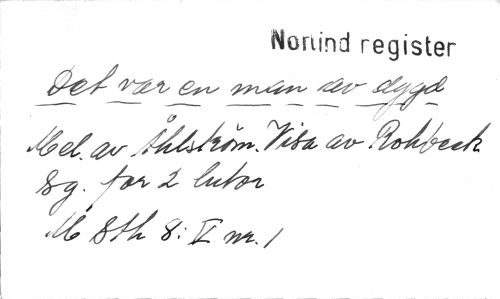 Norlind register
Det var en man av dygd
Mel. av Åhlström. Visa av Rohbeck
Sg. för 2 lutor
M Sth 8: V nr. 1